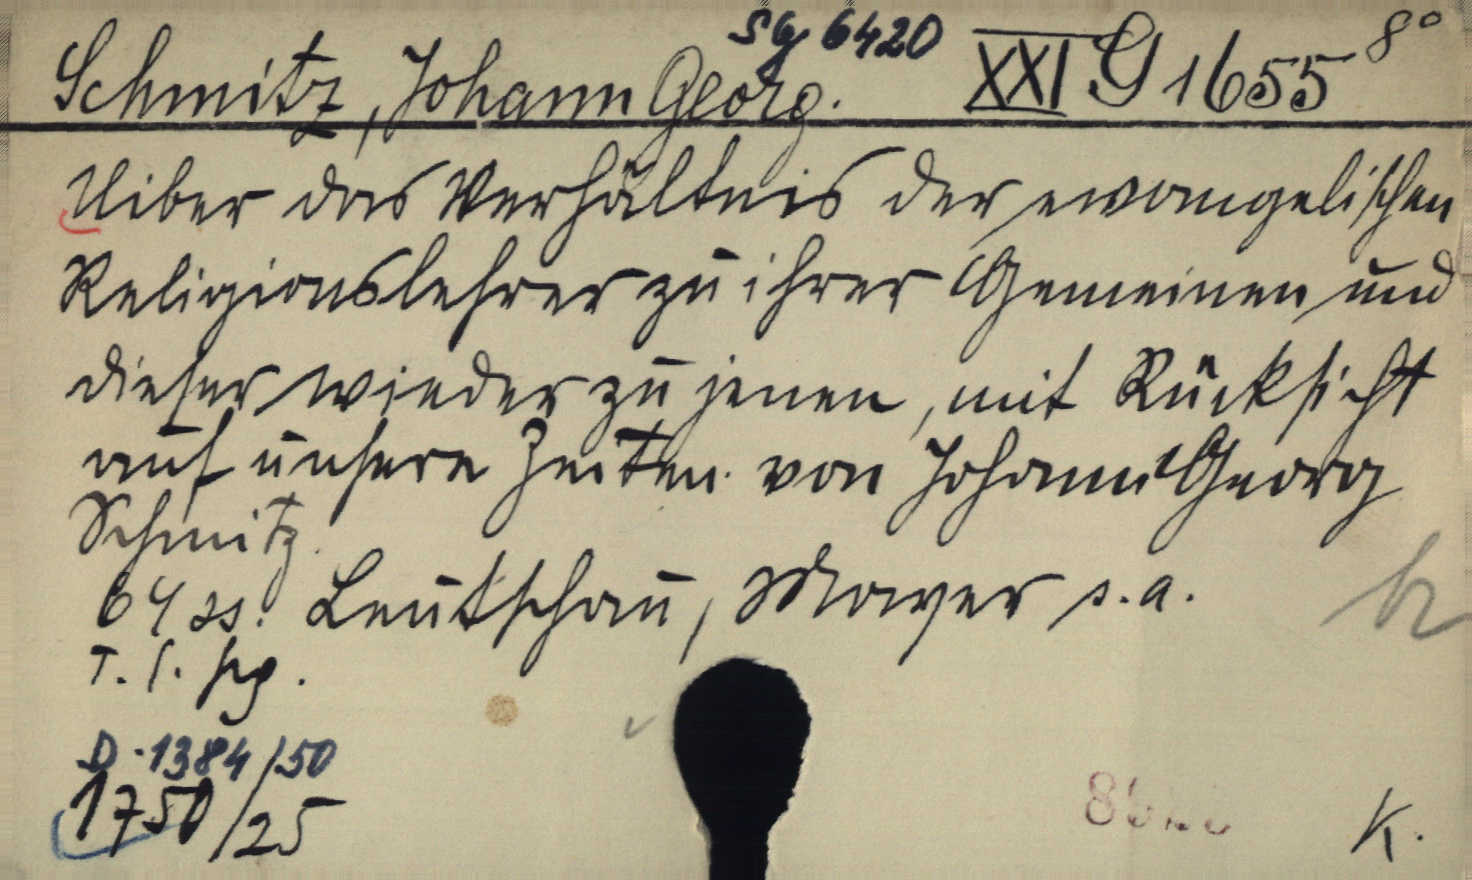 Sg 6420
Schmitz, Johann Georg. XXI G 1655 8°
Uiber das Verhältnis der ewangelischen
Religionslehrer zu ihrer Gemeinen und
dieser wieder zu jenen, mit Rücksicht
auf unsere Zeiten. von Johann Georg
Schmitz.
64 ss. Leutschau, Mayer s.a.
D-1384/50
1750/25
K.